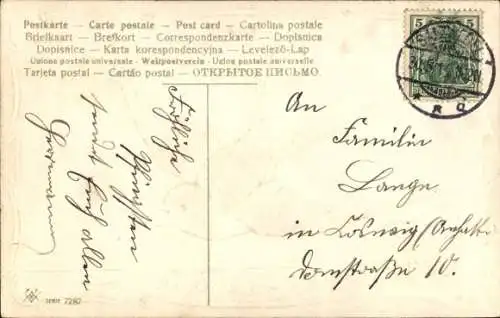 Postkarte – Carte postale – Post card – Cartolina postale
Briefkaart – Brefkort – Correspondenzkarte – Dopisnica
Dopisnice – Karta korespondencyjna – Levelező-Lap
Unione postale universale – Weltpostverein – Union postale universelle
Tarjeta postal – Cartão postal – ОТКРЫТОЕ ПИСЬМО
5 5
Fröhliche
Pfingsten
sendet Euch allen
Hermann
An
Familie
Lange
in Coswig (Anhalt)
Domstraße 10.
SERIE 7287